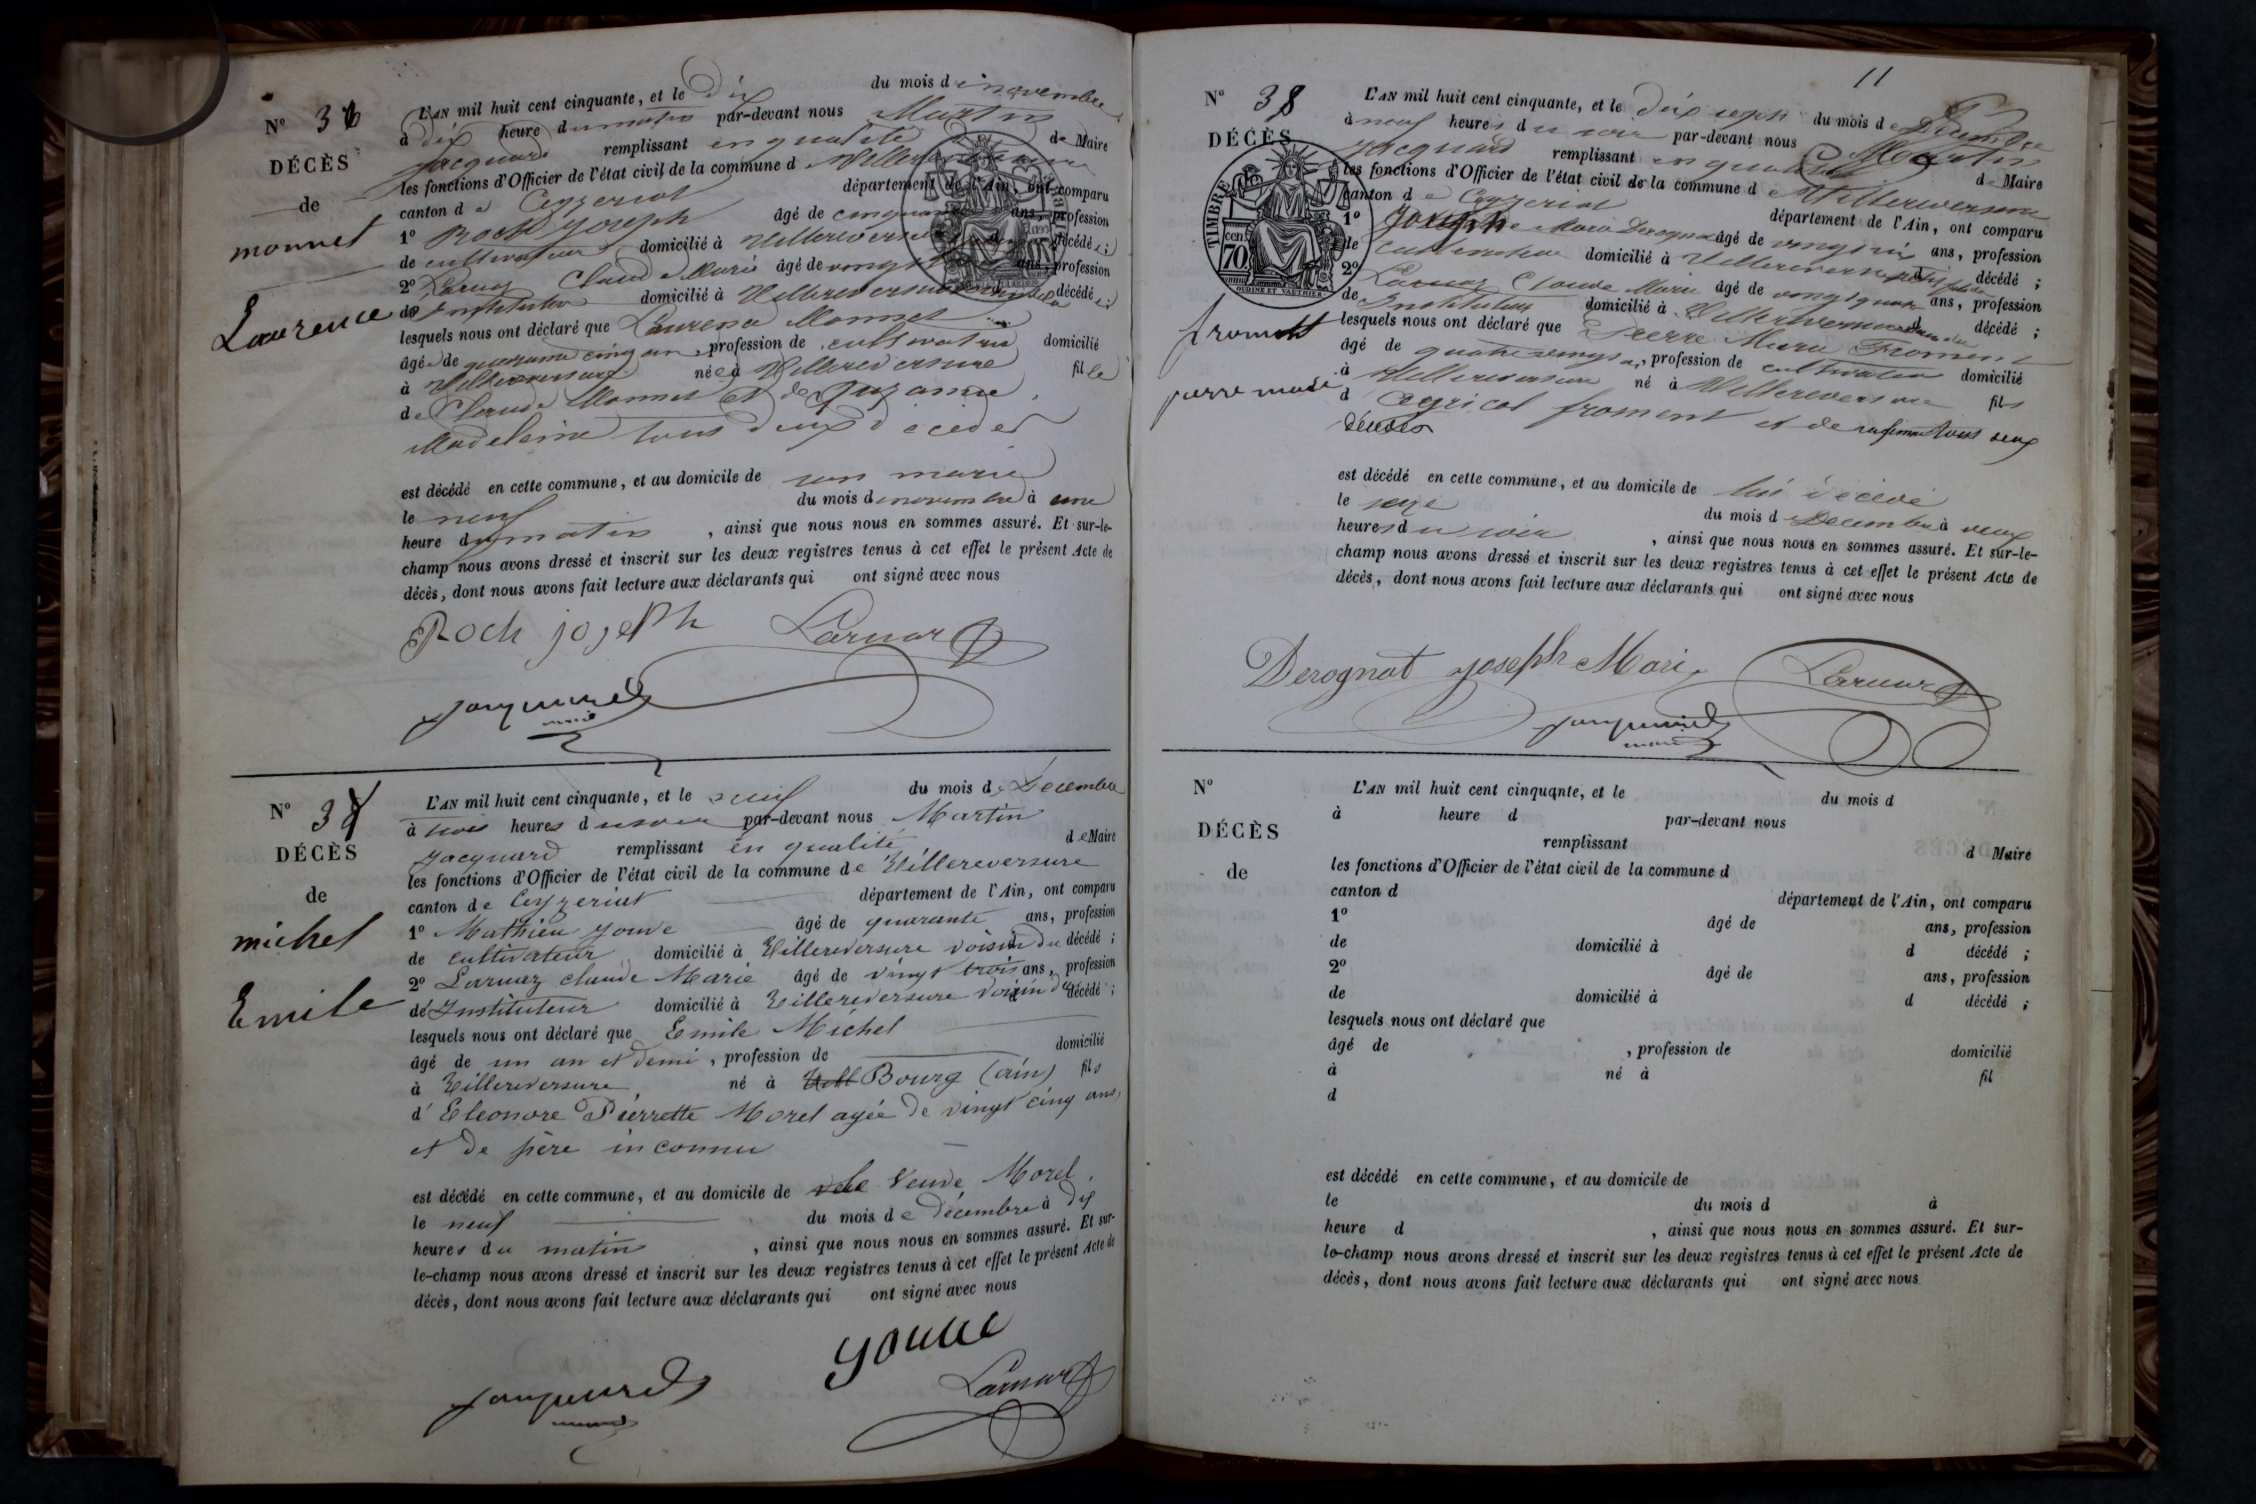 N° 36
DÉCÈS
de
monnet
Laurence
L'AN mil huit cent cinquante, et le dix du mois de novembre
à dix heure du matin par-devant nous Martin
Jacquard remplissant en qualité de Maire
les fonctions d'Officier de l'état civil de la commune de Villereversure
canton de Ceyzeriat département de l'Ain, ont comparu
1° Roch Joseph âgé de cinquante ans, profession
de cultivateur domicilié à Villereversure décédé ;
2° Larnaz Claude Marie âgé de vingt ans, profession
de Instituteur domicilié à Villereversure décédé
lesquels nous ont déclaré que Laurence Monnet
âgée de quarante cinq ans, profession de cultivatrice domicilié
à Villereversure née à Villereversure fille
de Claude Monnet et de Suzanne
Madeleine tous deux décédés
est décédé en cette commune, et au domicile de son marie
le neuf du mois de novembre à une
heure du matin, ainsi que nous nous en sommes assuré. Et sur-le-
champ nous avons dressé et inscrit sur les deux registres tenus à cet effet le présent Acte de
décès, dont nous avons fait lecture aux déclarants qui ont signé avec nous
Roch joseph Larnaz
Jacquard
maire
N° 37
DÉCÈS
de
michel
Emile
L'AN mil huit cent cinquante, et le neuf du mois de Decembre
à trois heures du soir par-devant nous Martin
Jacquard remplissant en qualité de Maire
les fonctions d'Officier de l'état civil de la commune de Villereversure
canton de Ceyzeriat département de l'Ain, ont comparu
1° Mathieu youve âgé de quarante ans, profession
de cultivateur domicilié à Villereversure voisin du décédé ;
2° Larnaz claude Marie âgé de vingt trois ans, profession
de Instituteur domicilié à Villereversure voisin du décédé ;
lesquels nous ont déclaré que Emile Michel
âgé de un an et demi, profession de domicilié
à Villereversure né à Bourg (ain) fils
d' Eleonore Pierrette Morel agée de vingt cinq ans,
et de père inconnu
est décédé en cette commune, et au domicile de la Veuve Morel
le neuf du mois de décembre à dix
heures du matin, ainsi que nous nous en sommes assuré. Et sur-
le-champ nous avons dressé et inscrit sur les deux registres tenus à cet effet le présent Acte de
décès, dont nous avons fait lecture aux déclarants qui ont signé avec nous
youve
Jacquard Larnaz
maire
11
N° 38
DÉCÈS
TIMBRE
70 cen
OUDINÉ ET VAUTHIER
froment
pierre marie
L'AN mil huit cent cinquante, et le dix sept du mois de Décembre
à neuf heures du soir par-devant nous Martin
Jacquard remplissant en qualité de Maire
les fonctions d'Officier de l'état civil de la commune de Villereversure
canton de Ceyzeriat département de l'Ain, ont comparu
1° Joseph Marie Derognat âgé de vingt six ans, profession
de cultivateur domicilié à Villereversure décédé ;
2° Larnaz Claude Marie âgé de vingt quatre ans, profession
de Instituteur domicilié à Villereversure décédé ;
lesquels nous ont déclaré que Pierre Marie Froment
âgé de quatre vingts ans, profession de cultivateur domicilié
à Villereversure né à Villereversure fils
d' Agricol froment et de tous deux
décédés
est décédé en cette commune, et au domicile de lui décédé
le seize du mois de Decembre à deux
heures du soir, ainsi que nous nous en sommes assuré. Et sur-le-
champ nous avons dressé et inscrit sur les deux registres tenus à cet effet le présent Acte de
décès, dont nous avons fait lecture aux déclarants qui ont signé avec nous
Derognat joseph Marie Larnaz
Jacquard
maire
N°
DÉCÈS
de
L'AN mil huit cent cinquante, et le du mois d
à heure d par-devant nous
remplissant d Maire
les fonctions d'Officier de l'état civil de la commune d
canton d département de l'Ain, ont comparu
1° âgé de ans, profession
de domicilié à d décédé ;
2° âgé de ans, profession
de domicilié à d décédé ;
lesquels nous ont déclaré que
âgé de , profession de domicilié
à né à fil
d
est décédé en cette commune, et au domicile de
le du mois d à
heure d , ainsi que nous nous en sommes assuré. Et sur-
le-champ nous avons dressé et inscrit sur les deux registres tenus à cet effet le présent Acte de
décès, dont nous avons fait lecture aux déclarants qui ont signé avec nous